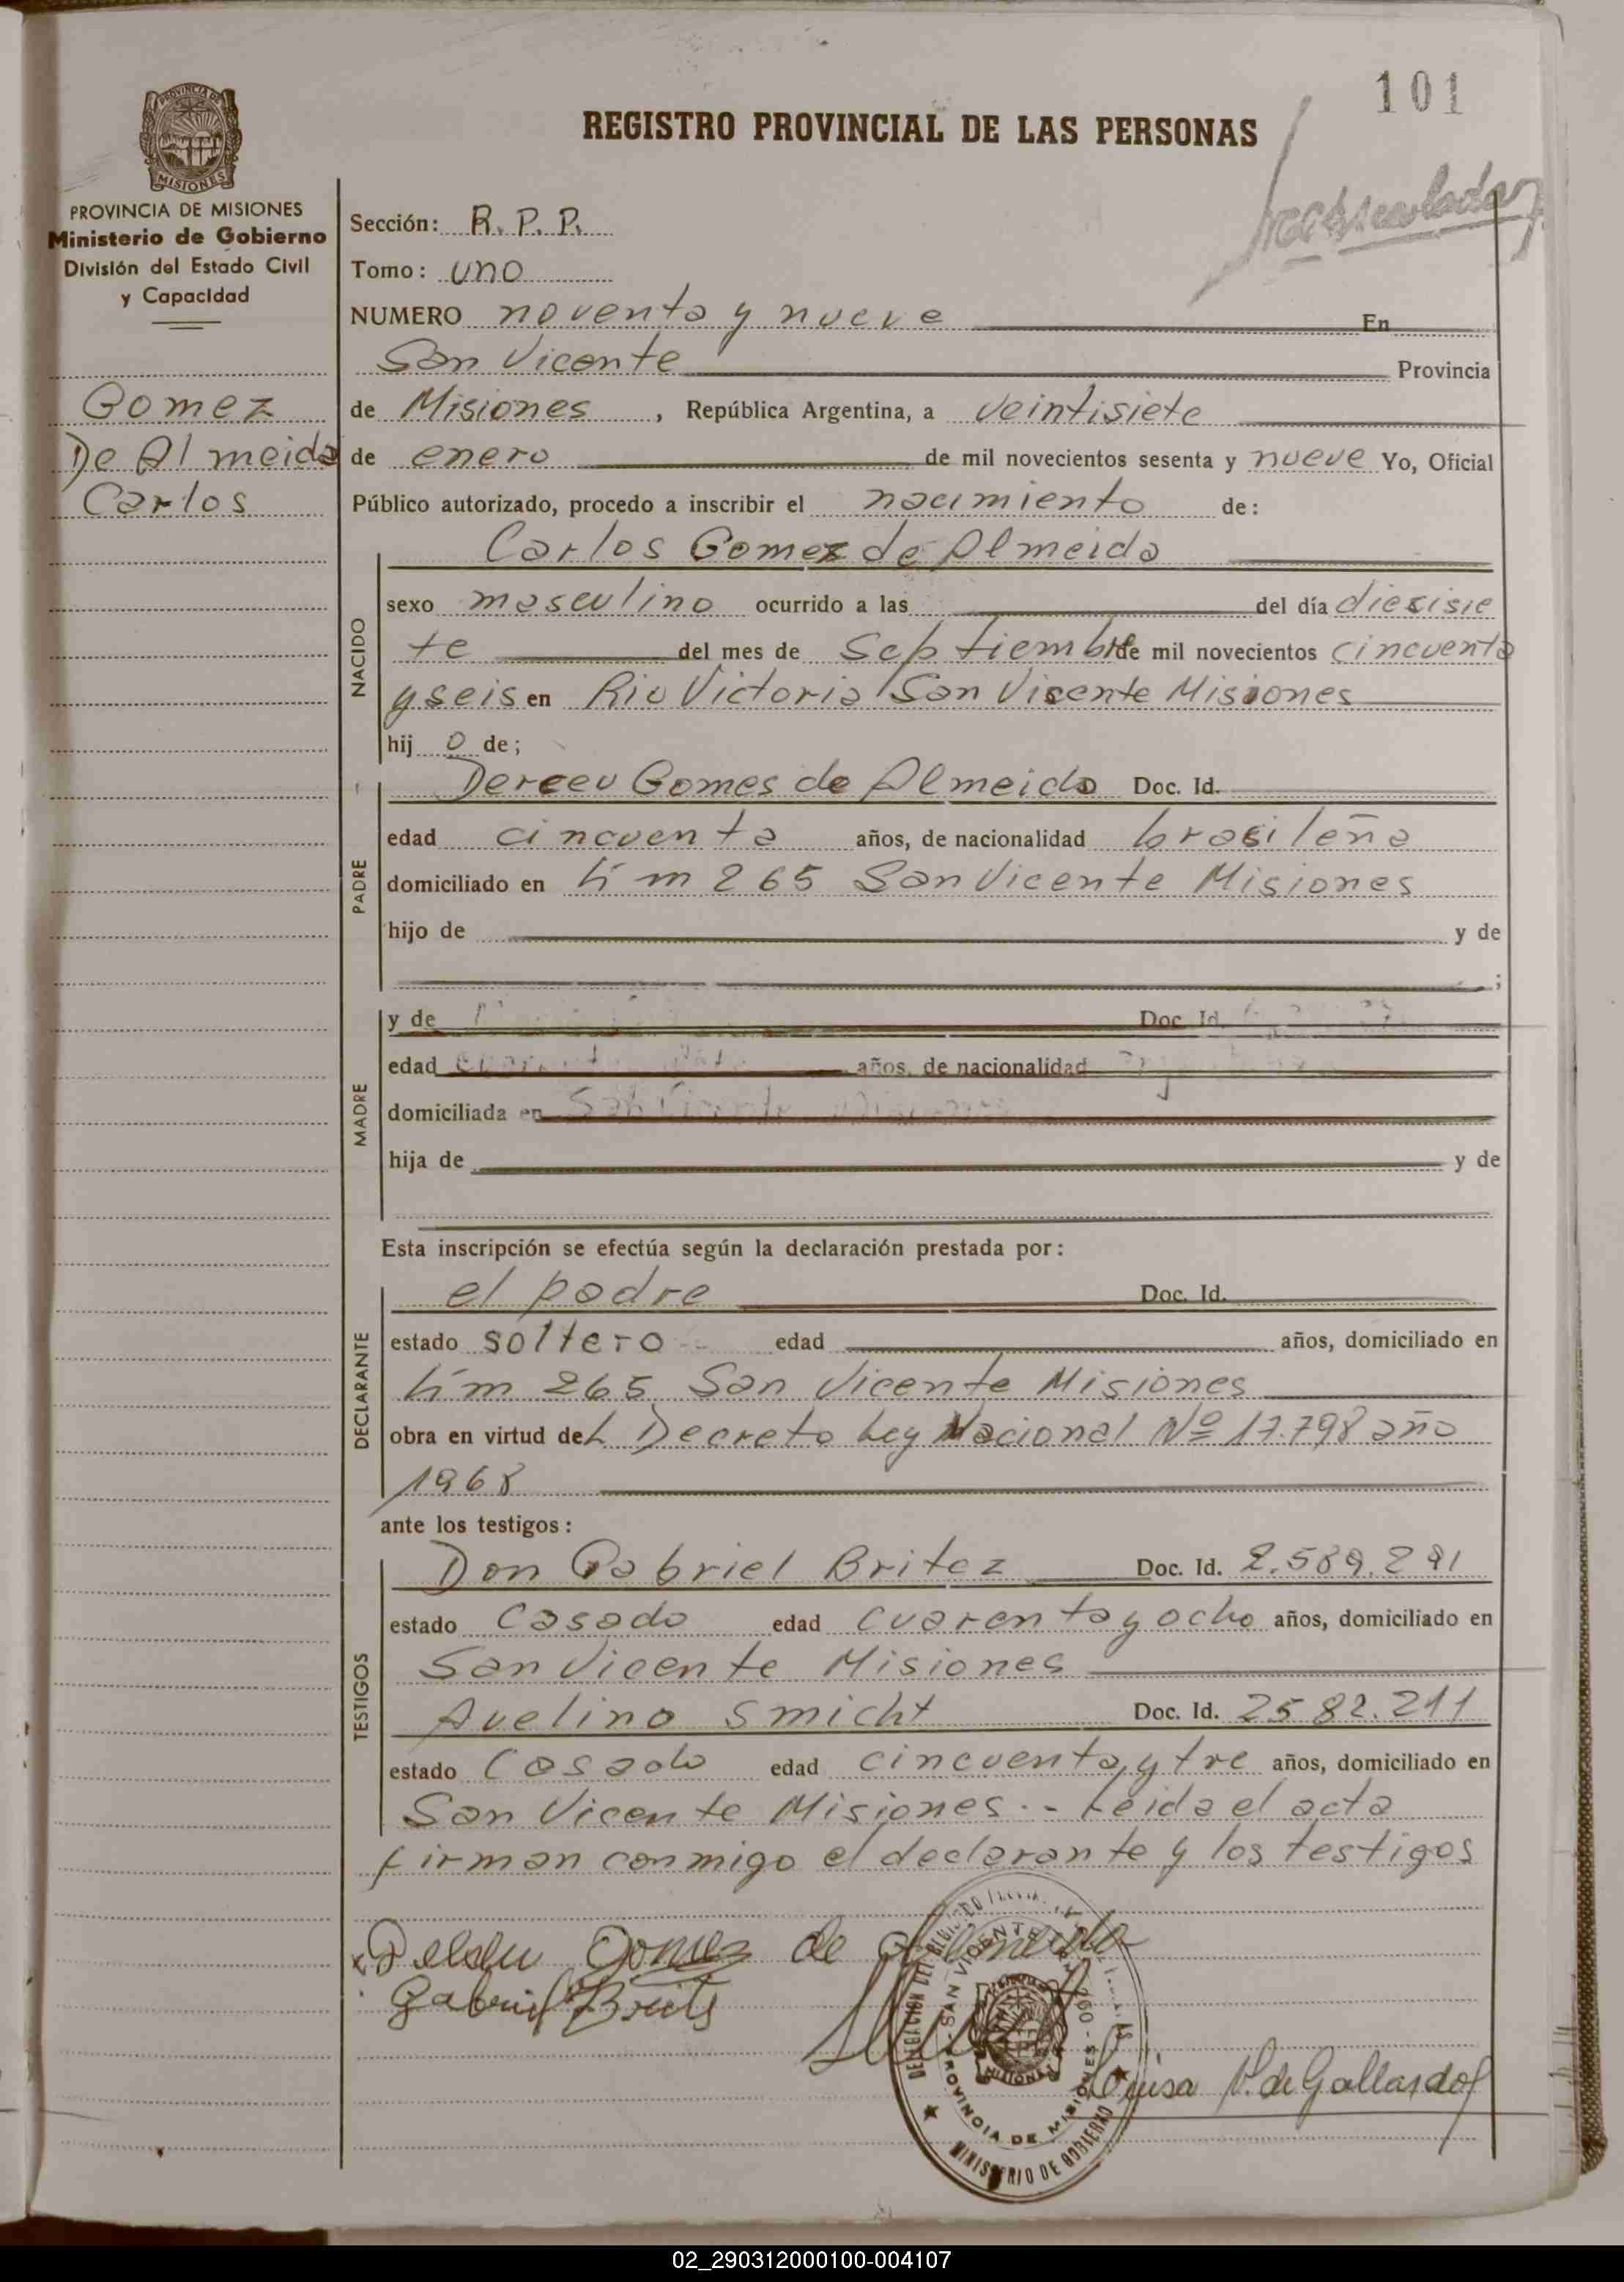 101
REGISTRO PROVINCIAL DE LAS PERSONAS
PROVINCIA DE MISIONES
PROVINCIA DE MISIONES
Ministerio de Gobierno
División del Estado Civil
y Capacidad
Gomez
De Almeida
Carlos
Sección: R. P. P.
Tomo: uno
NUMERO noventa y nueve En
San Vicente Provincia
de Misiones, República Argentina, a veintisiete
de enero de mil novecientos sesenta y nueve Yo, Oficial
Público autorizado, procedo a inscribir el nacimiento de:
Carlos Gomez de Almeida
NACIDO
sexo masculino ocurrido a las del día diesisie
te del mes de Septiembre de mil novecientos cincuenta
y seis en Rio Victoria San Vicente Misiones
hij o de;
PADRE
Derceu Gomes de Almeida Doc. Id.
edad cincuenta años, de nacionalidad brasileña
domiciliado en Km 265 San Vicente Misiones
hijo de y de
;
MADRE
y de Doc. Id.
edad años, de nacionalidad
domiciliada en San Vicente Misiones
hija de y de
Esta inscripción se efectúa según la declaración prestada por:
DECLARANTE
el padre Doc. Id.
estado soltero edad años, domiciliado en
Km 265 San Vicente Misiones
obra en virtud del Decreto Ley Nacional Nº 17.798 año
1968
ante los testigos:
TESTIGOS
Don Gabriel Britez Doc. Id. 2.589.291
estado Casado edad cuarenta y ocho años, domiciliado en
San Vicente Misiones
Avelino Smicht Doc. Id. 2582.211
estado Casado edad cincuenta y tre años, domiciliado en
San Vicente Misiones.- Leida el acta
firman conmigo el declarante y los testigos
Gomez de Almeida
Gabriel Brits
Luisa V. de Gallardo
DELEGACION DEL REGISTRO
SAN VICENTE
PROVINCIA DE MISIONES
MISIONES
MINISTERIO DE GOBIERNO
02_290312000100-004107